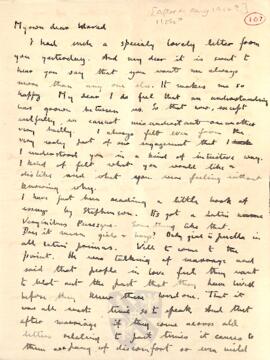 107
My own dear
I had such a specially lovely letter from
you yesterday. And my dear it is sweet to
hear you say that you want me always
more than any one else. It makes me so
happy My dear I do feel that an understanding
has grown between us. So that now, except
wilfully, we cannot misunderstand one another
very badly. I always felt even from the
very early part of our engagement that
I understood you in a kind of instinctive way.
I kind of felt what you would like &
dislike and what you were feeling without
knowing why.
I have just been reading a little book of
essays by Stephenson. It's got a Latin name
Virginibus Puerisque. Something like that.
Does it mean girls & boys? Only give in
all Latin Well to come to the
point. He was talking of marriage and
said that people in love feel they want
to blot out the fact that they have lived
before they knew their loved one. That it
was all waste time so to speak. And that
after marriage if they come across old
letters relating to past times it causes to
them a pang of discomfort or even mild